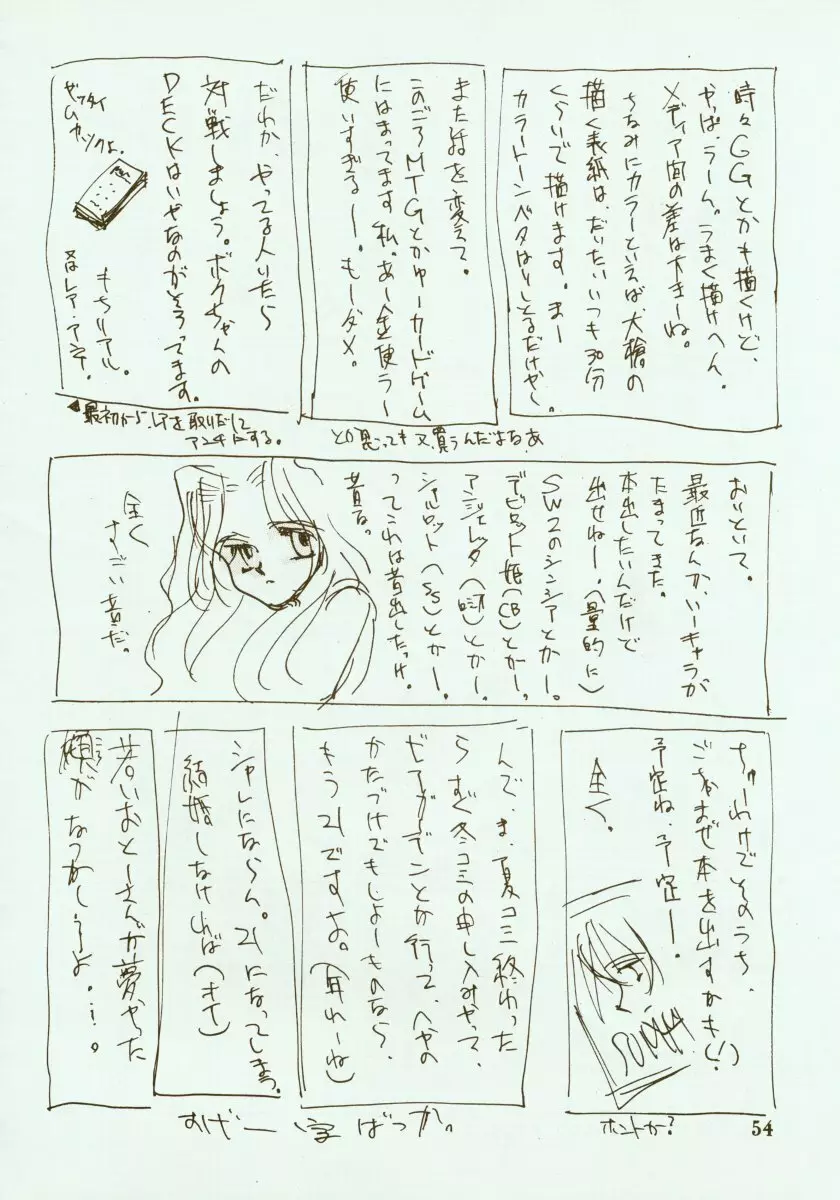 時々GGとかも描くけど、
やっぱ、うーん。うまく描けへん。
メディア間の差は大きーね。
ちなみにカラーといえば、犬槍の
描く表紙は、だいたいいつも30分
くらいで描けます。まー
カラートーンベタはりしとるだけやし。
また話を変えて。
このごろMTGとかゆーカードゲーム
にはまってます私。あー金使うー
使いすぎるー。もーダメ。
とか思っても又、買うんだよなあ
だれか、やってる人いたら
対戦しましょう。ボクちゃんの
DECKはいやなのがそろってます。
もちリアル。
はレア・アンテ。
最初からレアを取りだして
アンテにする。
おいといて。
最近なんか、いーキャラが
たまってきた。
本出したいんだけで
出せねー。(量的に)
SW2のシンシアとかー。
デビロット姫(CB)とかー。
アンジェレッタ()とかー。
シャルロット(SS)とかー。
ってこれは昔出したっけ。
昔る。
全く
すごい昔だ。
ちゅーわけでそのうち、
ごちゃまぜ本を出すかも(!)
予定ね、予定ー。
全く。
ホントか?
んで、ま、夏コミ終わった
らすぐ冬コミの申し込みやって、
ビアガーデンとか行って、へやの
かたづけでもしよーものなら、
もう21ですな。(早わーね)
シャレにならん。21になってしまう。
結婚しなければ(オイ)
若いおとーさんが夢やった
頃がなつかしうよ。…。
おげー 字ばっか。
54